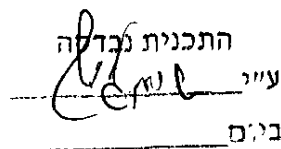 התכנית נבדקה
ע״י
ביום